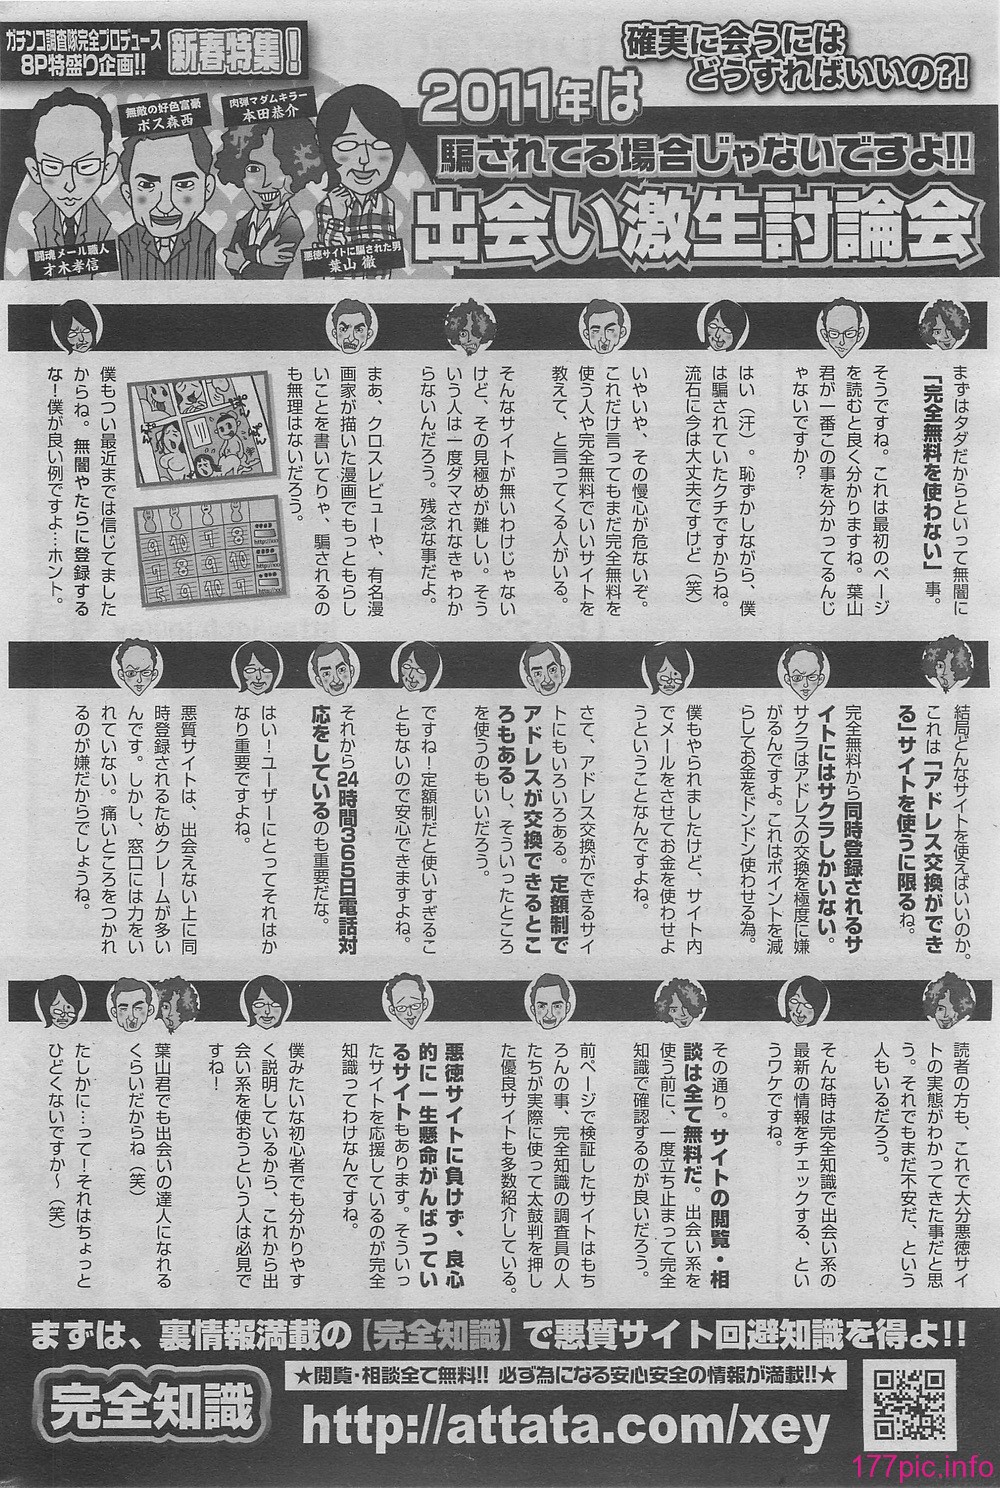 ガチンコ調査隊完全プロデュース
8P特盛り企画!!
新春特集！
確実に会うには
どうすればいいの?!
2011年は
騙されてる場合じゃないですよ!!
出会い激生討論会
無敵の好色富豪
ボス森西
肉弾マダムキラー
本田恭介
闘魂メール職人
才木孝信
悪徳サイトに騙された男
葉山 徹
まずはタダだからといって無闇に
「完全無料を使わない」事。
そうですね。これは最初のページ
を読むと良く分かりますね。葉山
君が一番この事を分かってるんじ
ゃないですか？
はい（汗）。恥ずかしながら、僕
は騙されていたクチですからね。
流石に今は大丈夫ですけど（笑）
いやいや、その慢心が危ないぞ。
これだけ言ってもまだ完全無料を
使う人や完全無料でいいサイトを
教えて、と言ってくる人がいる。
そんなサイトが無いわけじゃない
けど、その見極めが難しい。そう
いう人は一度ダマされなきゃわか
らないんだろう。残念な事だよ。
まあ、クロスレビューや、有名漫
画家が描いた漫画でもっともらし
いことを書いてりゃ、騙されるの
も無理はないだろう。
僕もつい最近までは信じてました
からね。無闇やたらに登録する
な！僕が良い例ですよ…ホント。
結局どんなサイトを使えばいいのか。
これは「アドレス交換ができ
る」サイトを使うに限るね。
完全無料から同時登録されるサ
イトにはサクラしかいない。
サクラはアドレスの交換を極度に嫌
がるんですよ。これはポイントを減
らしてお金をドンドン使わせる為。
僕もやられましたけど、サイト内
でメールをさせてお金を使わせよ
うということなんですよね。
さて、アドレス交換ができるサイ
トにもいろいろある。定額制で
アドレスが交換できるとこ
ろもあるし、そういったところ
を使うのもいいだろう。
ですね！定額制だと使いすぎるこ
ともないので安心できますよね。
それから24時間365日電話対
応をしているのも重要だな。
はい！ユーザーにとってそれはか
なり重要ですよね。
悪質サイトは、出会えない上に同
時登録されるためクレームが多い
んです。しかし、窓口には力をい
れていない。痛いところをつかれ
るのが嫌だからでしょうね。
読者の方も、これで大分悪徳サイ
トの実態がわかってきた事だと思
う。それでもまだ不安だ、という
人もいるだろう。
そんな時は完全知識で出会い系の
最新の情報をチェックする、とい
うワケですね。
その通り。サイトの閲覧・相
談は全て無料だ。出会い系を
使う前に、一度立ち止まって完全
知識で確認するのが良いだろう。
前ページで検証したサイトはもち
ろんの事、完全知識の調査員の人
たちが実際に使って太鼓判を押し
た優良サイトも多数紹介している。
悪徳サイトに負けず、良心
的に一生懸命がんばってい
るサイトもあります。そういっ
たサイトを応援しているのが完全
知識ってわけなんですね。
僕みたいな初心者でも分かりやす
く説明しているから、これから出
会い系を使おうという人は必見で
すね！
葉山君でも出会いの達人になれる
くらいだからね（笑）
たしかに…って！それはちょっと
ひどくないですか〜（笑）
まずは、裏情報満載の【完全知識】で悪質サイト回避知識を得よ!!
完全知識
★閲覧・相談全て無料!! 必ず為になる安心安全の情報が満載!!★
http://attata.com/xey
177pic.info